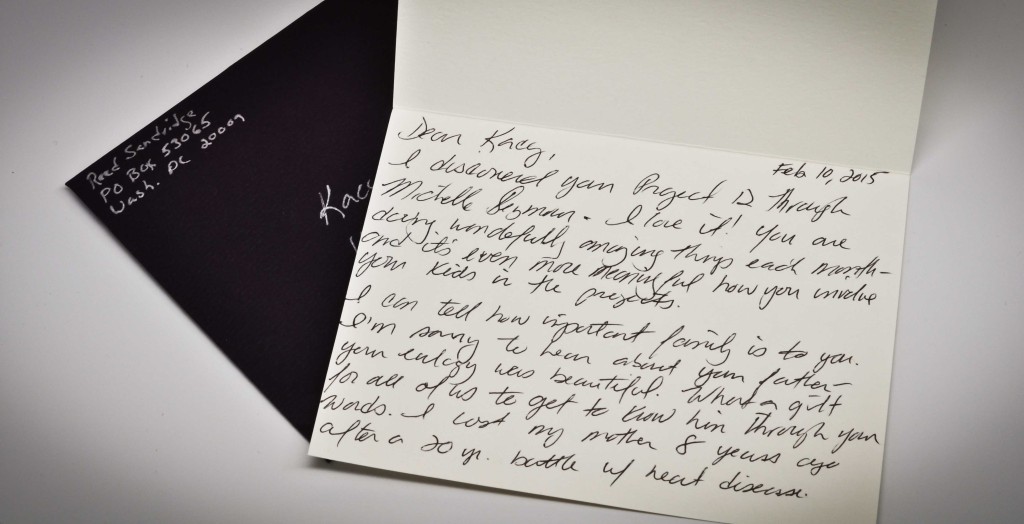 Reed Sandridge
PO Box 53065
Wash. DC 20009
Kacy
Feb 10, 2015
Dear Kacy,
I discovered your Project 12 through
Michelle - I love it! You are
doing wonderfully amazing things each month -
and it's even more meaningful how you involve
your kids in the projects.
I can tell how important family is to you.
I'm sorry to hear about your father -
your eulogy was beautiful. What a gift
for all of us to get to know him through your
words. I lost my mother 8 years ago
after a 20 yr. battle w/ heart disease.